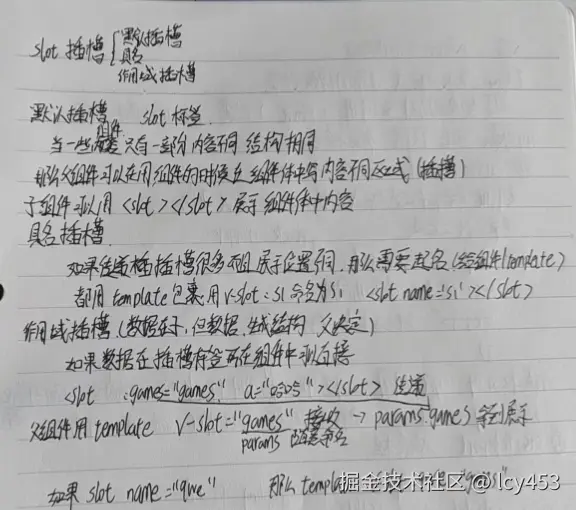 slot 插槽 { 默认插槽
具名
作用域插槽
默认插槽 slot 标签
当一些组件只有一部份内容不同 结构相同
那么父组件可以在用组件的时候在组件体中写内容不同区域 (插槽)
子组件可以用 <slot></slot> 展示组件体中内容
具名插槽
如果 插槽很多 展示位置不同, 那么需要起名 (给组件/template)
都用 template 包裹 用 v-slot:s1 命名为s1 <slot name='s1'></slot>
作用域插槽 (数据在子, 但数据 生成结构 父决定)
如果数据在插槽 所在组件中可以直接
<slot :games="games" a="0505"></slot> 传递
父组件用 template v-slot="games" 接收 → params.games 展示
params 随意命名
如果 slot name="qwe" 那么 template
掘金技术社区 @ lcy453